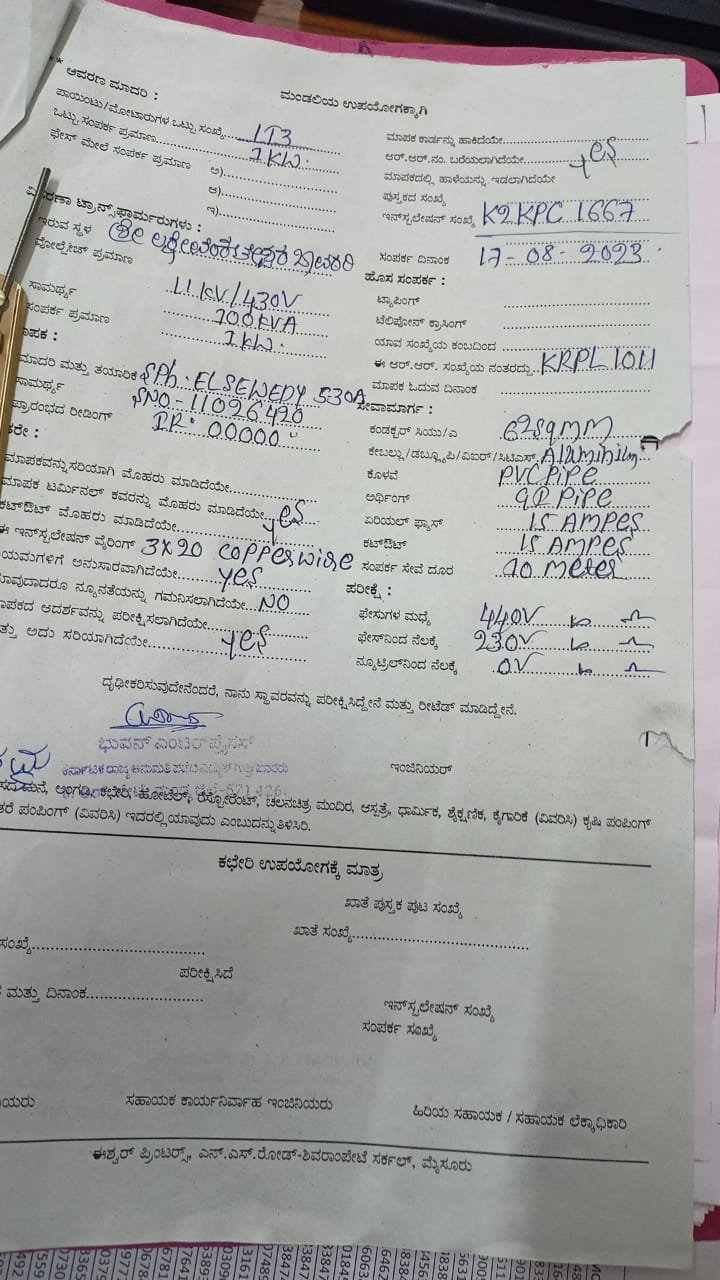 ** ಆವರಣ ಮಾದರಿ :
ಮಂಡಲಿಯ ಉಪಯೋಗಕ್ಕಾಗಿ
ಪಾಯಿಂಟು/ಮೋಟಾರುಗಳ ಒಟ್ಟು ಸಂಖ್ಯೆ
ಒಟ್ಟು ಸಂಪರ್ಕ ಪ್ರಮಾಣ 1KW.
ಫೇಸ್ ಮೇಲೆ ಸಂಪರ್ಕ ಪ್ರಮಾಣ ಅ)
ಆ)
ಇ)
ಟ್ರಾನ್ಸ್‌ಫಾರ್ಮರುಗಳು :
ಇರುವ ಸ್ಥಳ ಶ್ರೀ
ವೋಲ್ಟೇಜ್ ಪ್ರಮಾಣ 11KV/430V
ಸಾಮರ್ಥ್ಯ 100KVA
ಸಂಪರ್ಕ ಪ್ರಮಾಣ 1KW.
ಮಾದರಿ ಮತ್ತು ತಯಾರಿಕೆ SPh. ELSEWEDY 5-30A
ಸಾಮರ್ಥ್ಯ SNO-11026420
ಪ್ರಾರಂಭದ ರೀಡಿಂಗ್ IR: 00000
ಮಾಪಕವನ್ನು ಸರಿಯಾಗಿ ಮೊಹರು ಮಾಡಿದೆಯೇ
ಮಾಪಕ ಟರ್ಮಿನಲ್ ಕವರನ್ನು ಮೊಹರು ಮಾಡಿದೆಯೇ yes
ಕಟ್‌ಔಟ್ ಮೊಹರು ಮಾಡಿದೆಯೇ
ಈ ಇನ್‌ಸ್ಟಲೇಷನ್ ವೈರಿಂಗ್ 3X20 COPPER WIRE
ಯಮಗಳಿಗೆ ಅನುಸಾರವಾಗಿದೆಯೇ yes
ನ್ಯೂನತೆಯನ್ನು ಗಮನಿಸಲಾಗಿದೆಯೇ NO
ಆದರ್ಶವನ್ನು ಪರೀಕ್ಷಿಸಲಾಗಿದೆಯೇ
ಅದು ಸರಿಯಾಗಿದೆಯೇ yes
ಮಾಪಕ ಕಾರ್ಡನ್ನು ಹಾಕಿದೆಯೇ
ಆರ್.ಆರ್.ನಂ. ಬರೆಯಲಾಗಿದೆಯೇ yes
ಮಾಪಕದಲ್ಲಿ ಹಾಳೆಯನ್ನು ಇಡಲಾಗಿದೆಯೇ
ಪುಸ್ತಕದ ಸಂಖ್ಯೆ
ಇನ್‌ಸ್ಟಲೇಷನ್ ಸಂಖ್ಯೆ K2KPC 1667
ಸಂಪರ್ಕ ದಿನಾಂಕ 17-08-2023
ಹೊಸ ಸಂಪರ್ಕ :
ಟ್ಯಾಪಿಂಗ್
ಟೆಲಿಫೋನ್ ಕ್ರಾಸಿಂಗ್
ಯಾವ ಸಂಖ್ಯೆಯ ಕಂಬದಿಂದ
ಈ ಆರ್.ಆರ್. ಸಂಖ್ಯೆಯ ನಂತರದ್ದು KRPL 1011
ಮಾಪಕ ಓದುವ ದಿನಾಂಕ
ಸೇವಾಮಾರ್ಗ :
ಕಂಡಕ್ಟರ್ ಸಿಯು/ಎ 62SQMM
ಕೇಬಲ್ಲು/ಡಬ್ಲ್ಯೂಪಿ/ವಿಐರ್/ಸಿಟಿಎಸ್ Aluminium
ಕೊಳವೆ PVC PiPE
ಅರ್ಥಿಂಗ್ GI PiPe
ಏರಿಯಲ್ ಫ್ಯೂಸ್ 15 AMPES
ಕಟ್‌ಔಟ್ 15 AMPES
ಸಂಪರ್ಕ ಸೇವೆ ದೂರ 10 meter
ಪರೀಕ್ಷೆ :
ಫೇಸುಗಳ ಮಧ್ಯೆ 440V
ಫೇಸ್‌ನಿಂದ ನೆಲಕ್ಕೆ 230V
ನ್ಯೂಟ್ರಲ್‌ನಿಂದ ನೆಲಕ್ಕೆ 0V
ದೃಢೀಕರಿಸುವುದೇನೆಂದರೆ, ನಾನು ಸ್ಥಾವರವನ್ನು ಪರೀಕ್ಷಿಸಿದ್ದೇನೆ ಮತ್ತು ರೀಟೆಡ್ ಮಾಡಿದ್ದೇನೆ.
ಭುವನ್ ಎಂಟರ್‌ಪ್ರೈಸಸ್
ಇಂಜಿನಿಯರ್
ಮನೆ, ಅಂಗಡಿ, ಕಛೇರಿ, ಹೋಟೆಲ್, ರೆಸ್ಟೋರೆಂಟ್, ಚಲನಚಿತ್ರ ಮಂದಿರ, ಆಸ್ಪತ್ರೆ, ಧಾರ್ಮಿಕ, ಶೈಕ್ಷಣಿಕ, ಕೈಗಾರಿಕೆ (ವಿವರಿಸಿ) ಕೃಷಿ ಪಂಪಿಂಗ್
ಪಂಪಿಂಗ್ (ವಿವರಿಸಿ) ಇದರಲ್ಲಿ ಯಾವುದು ಎಂಬುದನ್ನು ತಿಳಿಸಿರಿ.
ಕಛೇರಿ ಉಪಯೋಗಕ್ಕೆ ಮಾತ್ರ
ಖಾತೆ ಪುಸ್ತಕ ಪುಟ ಸಂಖ್ಯೆ
ಸಂಖ್ಯೆ
ಖಾತೆ ಸಂಖ್ಯೆ
ಪರೀಕ್ಷಿಸಿದೆ
ಮತ್ತು ದಿನಾಂಕ
ಇನ್‌ಸ್ಟಲೇಷನ್ ಸಂಖ್ಯೆ
ಸಂಪರ್ಕ ಸಂಖ್ಯೆ
ಸಹಾಯಕ ಕಾರ್ಯನಿರ್ವಾಹ ಇಂಜಿನಿಯರು
ಹಿರಿಯ ಸಹಾಯಕ / ಸಹಾಯಕ ಲೆಕ್ಕಾಧಿಕಾರಿ
ಈಶ್ವರ್ ಪ್ರಿಂಟರ್ಸ್, ಎನ್.ಎಸ್.ರೋಡ್-ಶಿವರಾಂಪೇಟೆ ಸರ್ಕಲ್, ಮೈಸೂರು